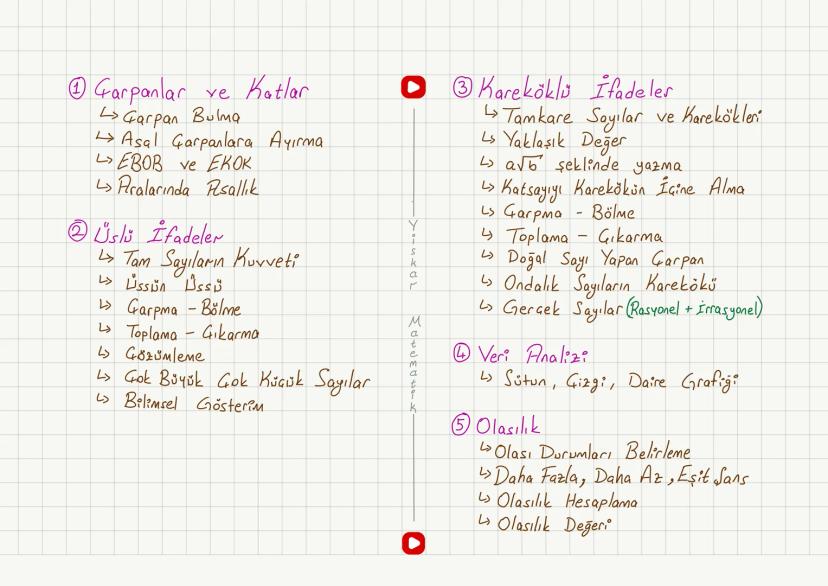 ① Çarpanlar ve Katlar
↳ Çarpan Bulma
↳ Asal Çarpanlara Ayırma
↳ EBOB ve EKOK
↳ Aralarında Asallık
② Üslü İfadeler
↳ Tam Sayıların Kuvveti
↳ Üssün Üssü
↳ Çarpma - Bölme
↳ Toplama - Çıkarma
↳ Çözümleme
↳ Çok Büyük Çok Küçük Sayılar
↳ Bilimsel Gösterim
Yıskar Matematik
③ Kareköklü İfadeler
↳ Tamkare Sayılar ve Karekökleri
↳ Yaklaşık Değer
↳ a√b şeklinde yazma
↳ Katsayıyı Karekökün İçine Alma
↳ Çarpma - Bölme
↳ Toplama - Çıkarma
↳ Doğal Sayı Yapan Çarpan
↳ Ondalık Sayıların Karekökü
↳ Gerçek Sayılar (Rasyonel + İrrasyonel)
④ Veri Analizi
↳ Sütun, Çizgi, Daire Grafiği
⑤ Olasılık
↳ Olası Durumları Belirleme
↳ Daha Fazla, Daha Az, Eşit Şans
↳ Olasılık Hesaplama
↳ Olasılık Değeri